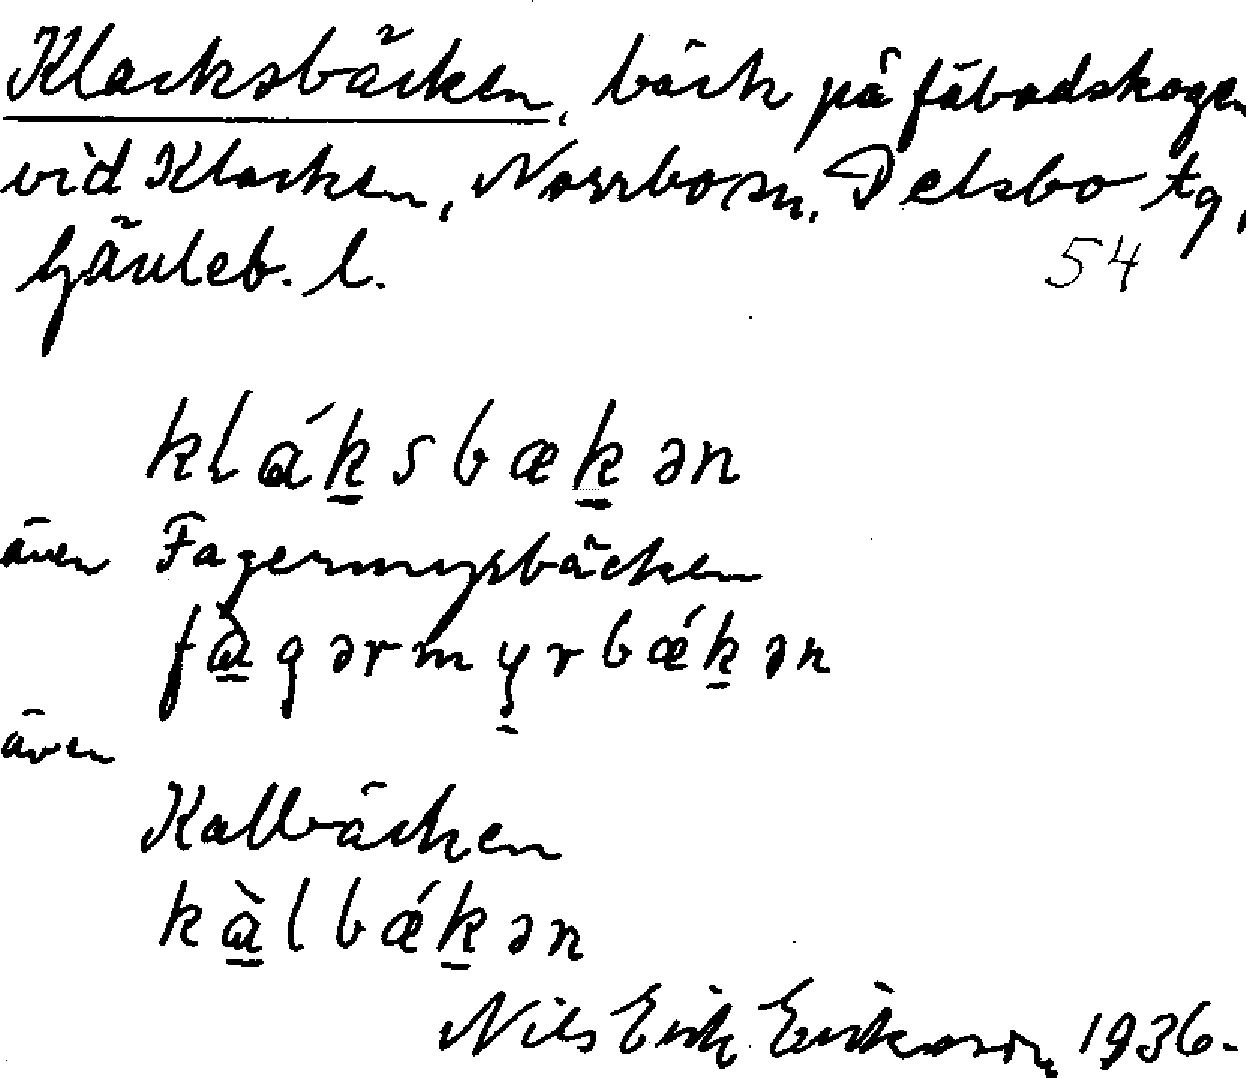 Klacksbäcken, bäck på fäbodskogen
vid Klacken, Norrbo sn, Delsbo tg,
Gävleb. l.
54
kláksbækən
även Fagermyrbäcken
fàgərmyrbǽkən
även
Kallbäcken
kàlbǽkən
Nils Erik Eriksson 1936.